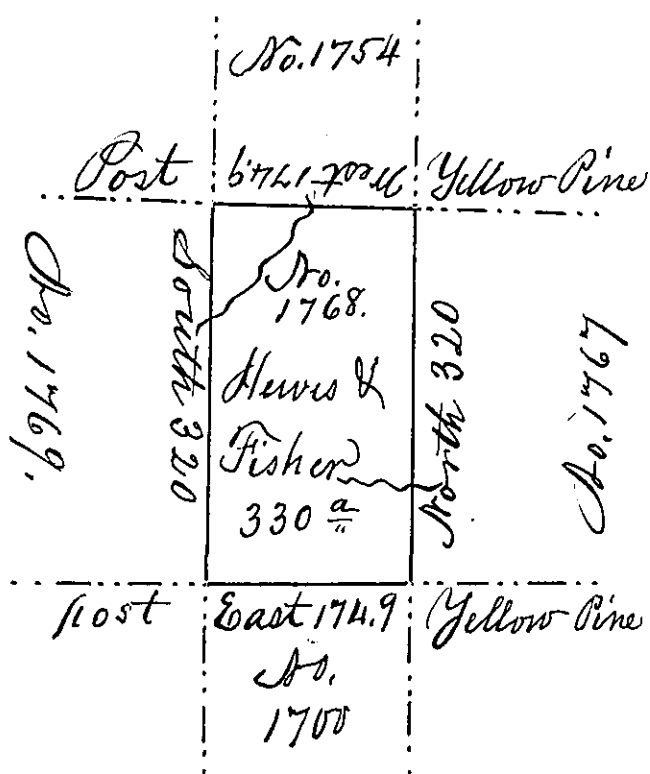 No. 1754
Post
West 174.9
Yellow Pine
No. 1769.
South 320
No.
1768.
Hewes &
Fisher
330 a
North 320
No. 1767
Post
East 174.9
Yellow Pine
No.
1700